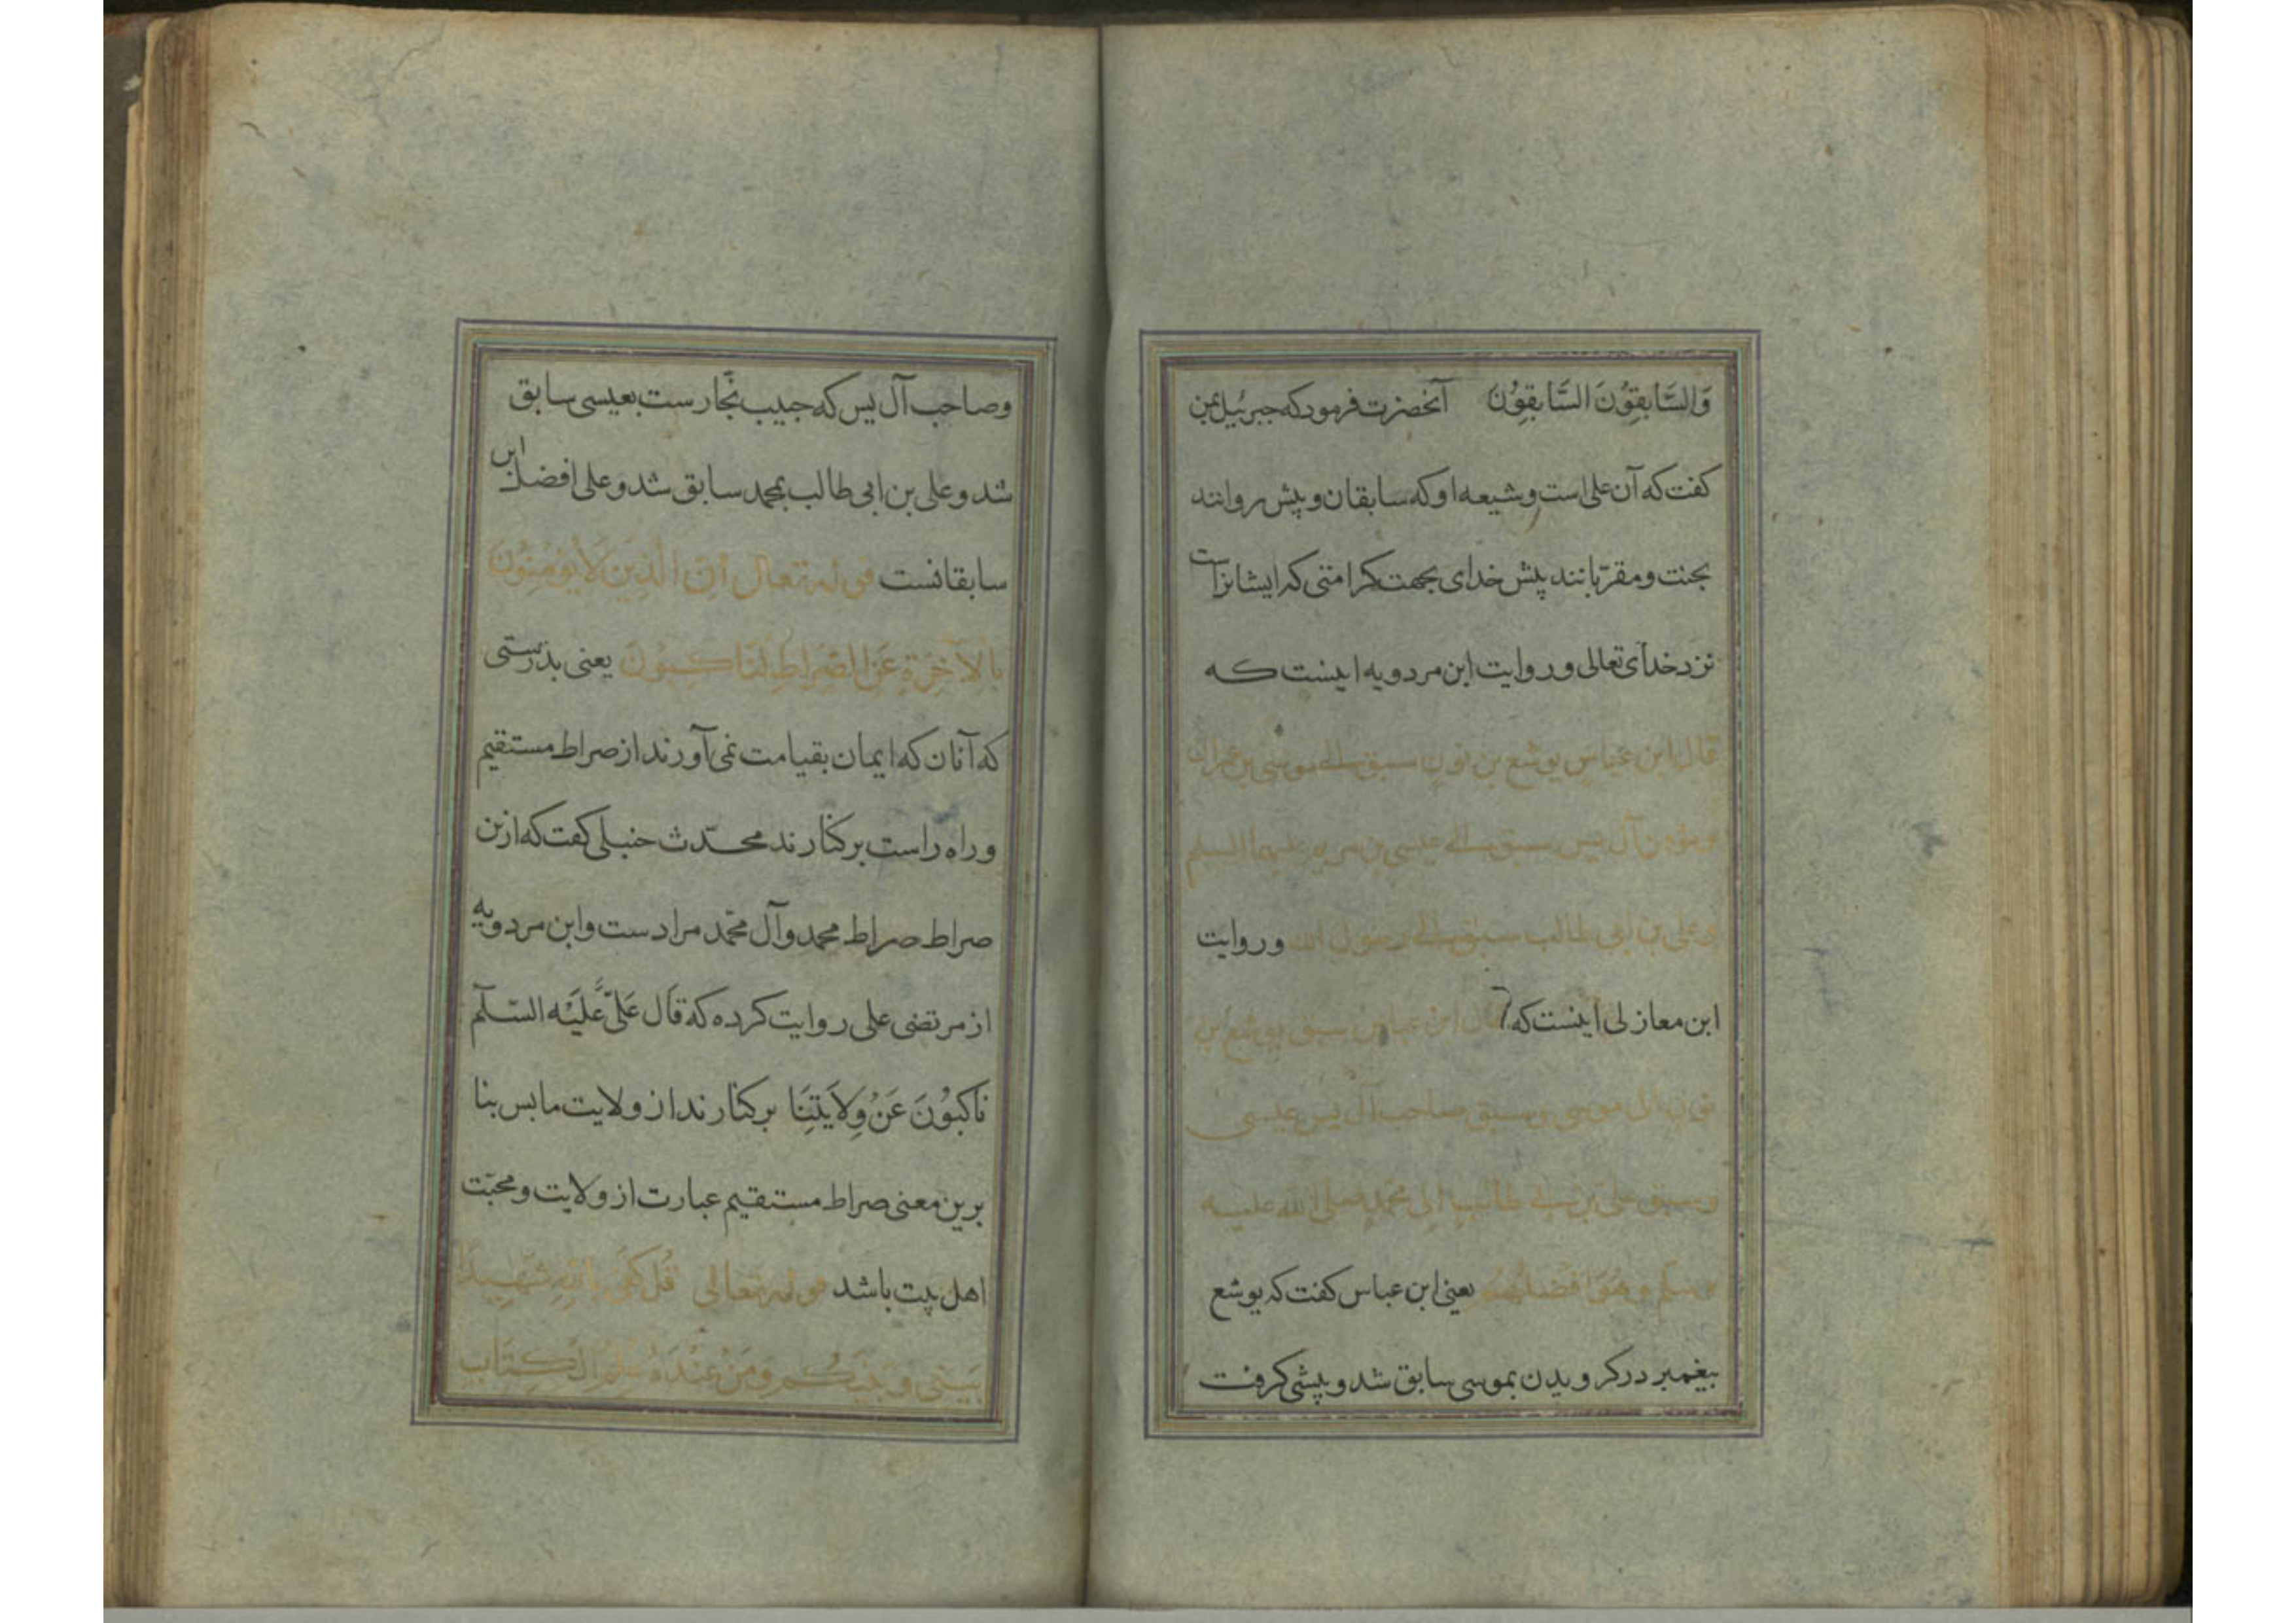 وَالسَّابِقُونَ السَّابِقُونَ آنحضرت فرمود که جبرئیل بمن
کفت که آن علی است و شیعه او که سابقان و پیش روانند
بجنت و مقرّبانند پیش خدای بجهت کرامتی که ایشانراست
نزد خدای تعالی و روایت ابن مردویه اینست که
قال ابن عباس یوشع بن نون سبق الی موسی بن عمران
ومؤمن آل یس سبق الی عیسی بن مریم علیهما السلم
وعلی بن ابی طالب سبق الی رسول الله و روایت
ابن مغازلی اینست که قال ابن عباس سبق یوشع بن
نون الی موسی وسبق صاحب آل یس عیسی
وسبق علی بن ابی طالب الی محمّد صلی الله علیه
وسلّم وهُوَ افضلهُم یعنی ابن عباس کفت که یوشع
پیغمبر در کرویدن بموسی سابق شد و پیشی کرفت
وصاحب آل یس که حبیب نجّارست بعیسی سابق
شد و علی بن ابی طالب بمحمد سابق شد و علی افضل این
سابقانست قوله تعالی اِنَّ الَّذِینَ لَا یُؤمِنُونَ
بِالآخِرَةِ عَنِ الصِّرَاطِ لَنَاکِبُونَ یعنی بدرستی
که آنان که ایمان بقیامت نمی آورند از صراط مستقیم
و راه راست بر کنارند محدّث حنبلی کفت که ازین
صراط صراط محمد و آل محمّد مرادست و ابن مردویه
از مرتضی علی روایت کرده که قَال عَلیٌّ عَلَیْه السّلَم
نَاکِبُونَ عَنْ وِلَایَتِنَا بر کنارند از ولایت ما پس بنا
برین معنی صراط مستقیم عبارت از ولایت و محبّت
اهل بیت باشد قوله تعالی قُل کَفَی بِاللّهِ شَهِیدًا
بَیْنِی وَ بَیْنَکُم وَمَنْ عِنْدَهُ عِلْمُ الْکِتَابِ